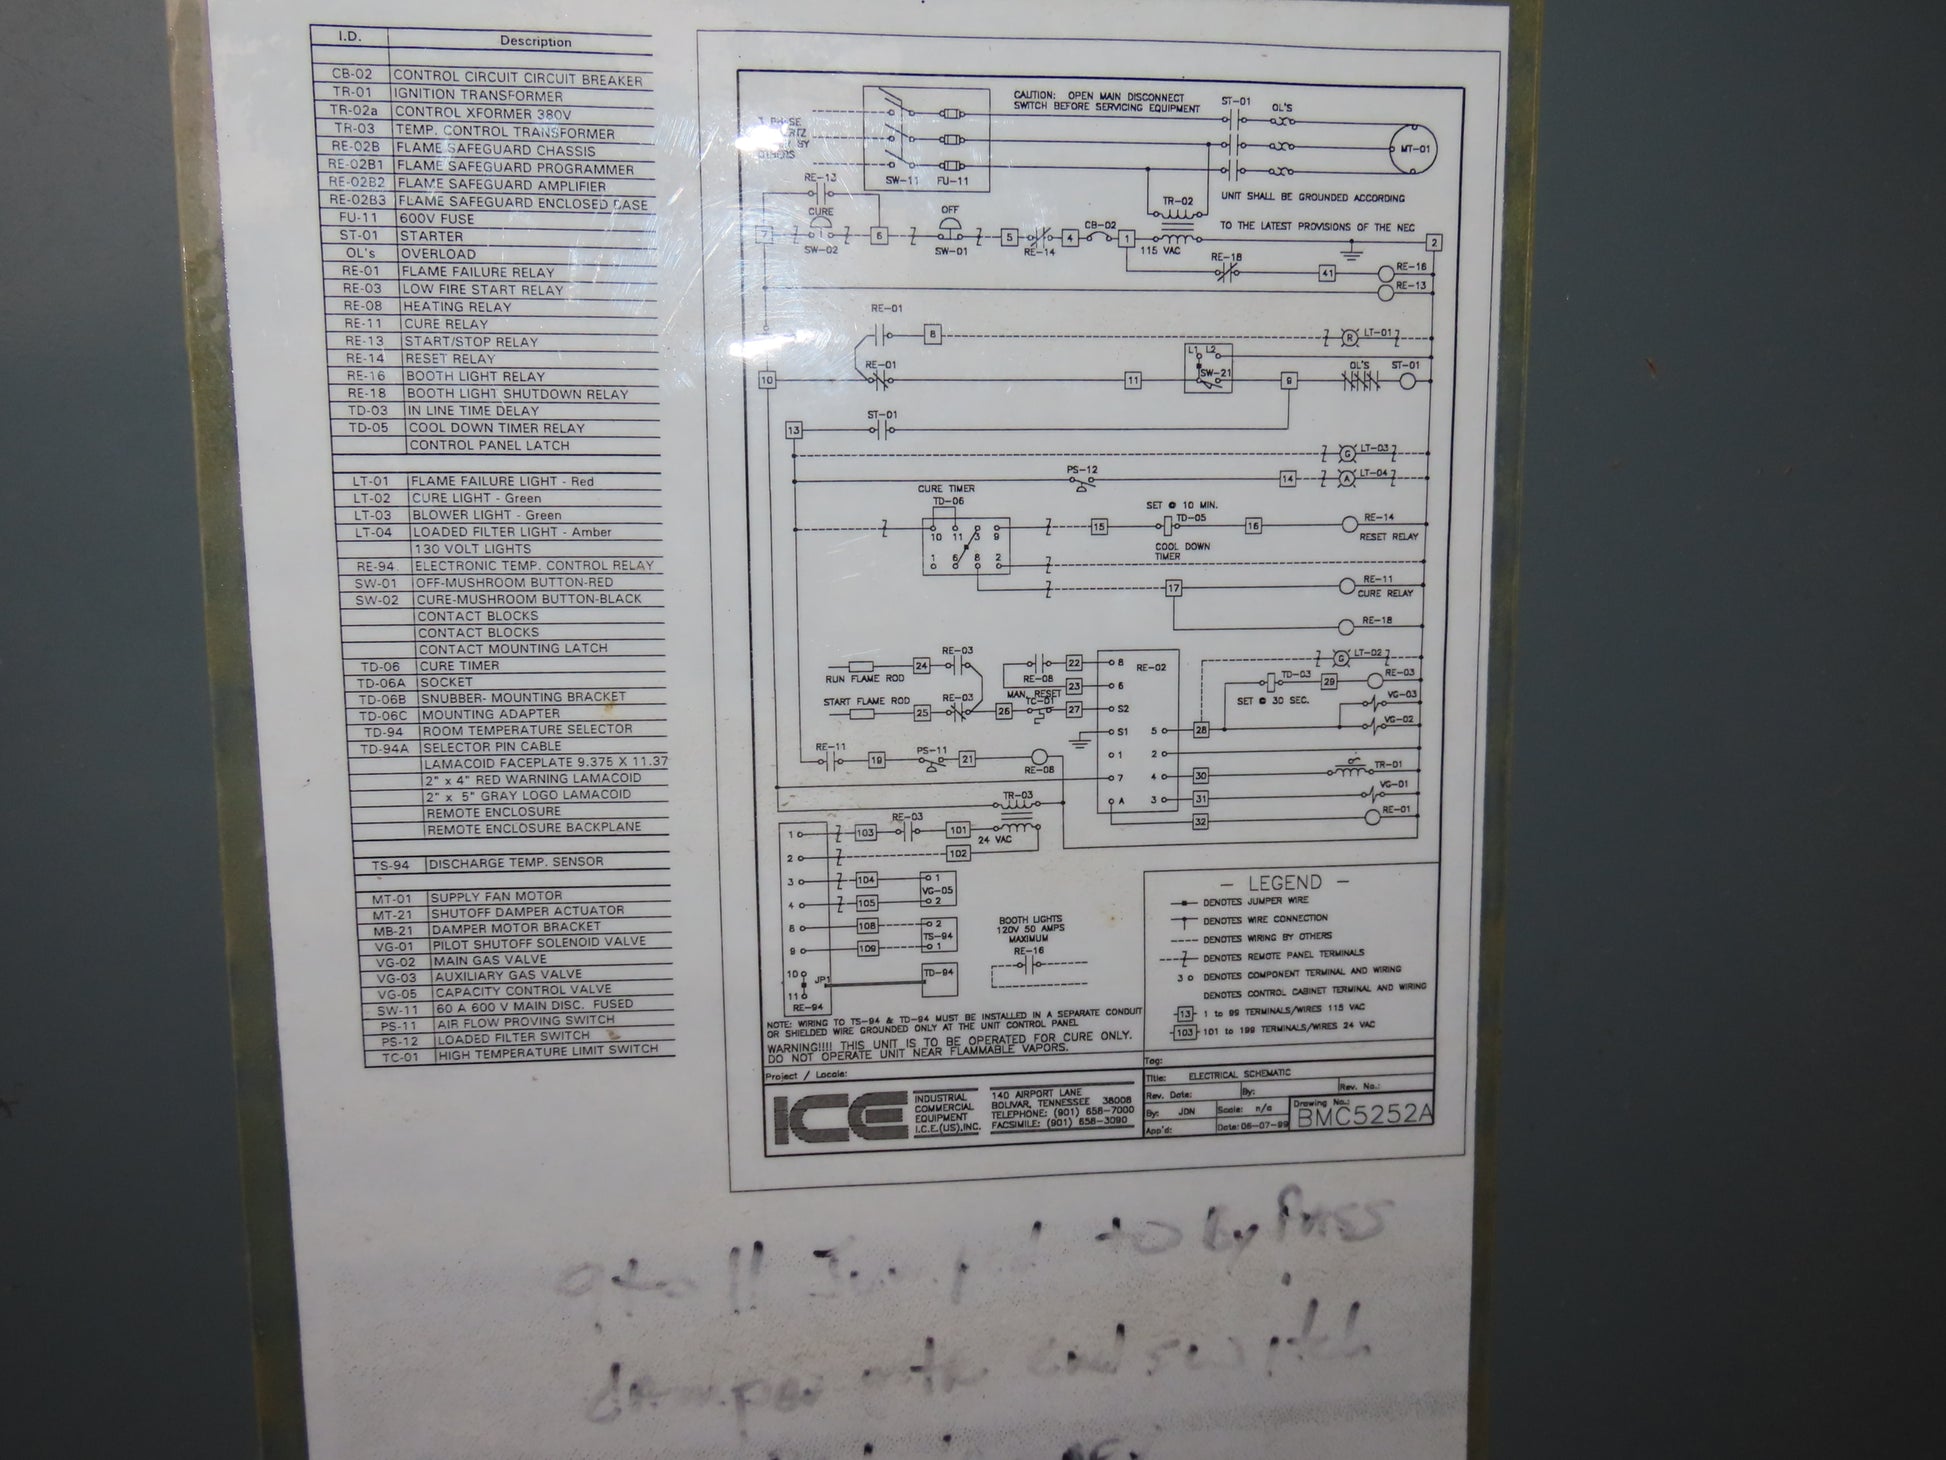 I.D. Description
CB-02 CONTROL CIRCUIT CIRCUIT BREAKER
TR-01 IGNITION TRANSFORMER
TR-02a CONTROL XFORMER 380V
TR-03 TEMP. CONTROL TRANSFORMER
RE-02B FLAME SAFEGUARD CHASSIS
RE-02B1 FLAME SAFEGUARD PROGRAMMER
RE-02B2 FLAME SAFEGUARD AMPLIFIER
RE-02B3 FLAME SAFEGUARD ENCLOSED BASE
FU-11 600V FUSE
ST-01 STARTER
OL's OVERLOAD
RE-01 FLAME FAILURE RELAY
RE-03 LOW FIRE START RELAY
RE-08 HEATING RELAY
RE-11 CURE RELAY
RE-13 START/STOP RELAY
RE-14 RESET RELAY
RE-16 BOOTH LIGHT RELAY
RE-18 BOOTH LIGHT SHUTDOWN RELAY
TD-03 IN LINE TIME DELAY
TD-05 COOL DOWN TIMER RELAY
CONTROL PANEL LATCH
LT-01 FLAME FAILURE LIGHT - Red
LT-02 CURE LIGHT - Green
LT-03 BLOWER LIGHT - Green
LT-04 LOADED FILTER LIGHT - Amber
130 VOLT LIGHTS
RE-94 ELECTRONIC TEMP. CONTROL RELAY
SW-01 OFF-MUSHROOM BUTTON-RED
SW-02 CURE-MUSHROOM BUTTON-BLACK
CONTACT BLOCKS
CONTACT BLOCKS
CONTACT MOUNTING LATCH
TD-06 CURE TIMER
TD-06A SOCKET
TD-06B SNUBBER- MOUNTING BRACKET
TD-06C MOUNTING ADAPTER
TD-94 ROOM TEMPERATURE SELECTOR
TD-94A SELECTOR PIN CABLE
LAMACOID FACEPLATE 9.375 X 11.37
2" x 4" RED WARNING LAMACOID
2" x 5" GRAY LOGO LAMACOID
REMOTE ENCLOSURE
REMOTE ENCLOSURE BACKPLANE
TS-94 DISCHARGE TEMP. SENSOR
MT-01 SUPPLY FAN MOTOR
MT-21 SHUTOFF DAMPER ACTUATOR
MB-21 DAMPER MOTOR BRACKET
VG-01 PILOT SHUTOFF SOLENOID VALVE
VG-02 MAIN GAS VALVE
VG-03 AUXILIARY GAS VALVE
VG-05 CAPACITY CONTROL VALVE
SW-11 60 A 600 V MAIN DISC. FUSED
PS-11 AIR FLOW PROVING SWITCH
PS-12 LOADED FILTER SWITCH
TC-01 HIGH TEMPERATURE LIMIT SWITCH
CAUTION: OPEN MAIN DISCONNECT
SWITCH BEFORE SERVICING EQUIPMENT
ST-01 OL'S
PHASE
BY
OTHERS
MT-01
SW-11 FU-11
RE-13
UNIT SHALL BE GROUNDED ACCORDING
TO THE LATEST PROVISIONS OF THE NEC
CURE OFF TR-02
7 6 5 4 CB-02 1 2
SW-02 SW-01 RE-14 115 VAC
RE-18 41 RE-16
RE-13
RE-01
8 R LT-01
L1 L2
10 RE-01 11 SW-21 9 OL'S ST-01
13 ST-01
G LT-03
PS-12 14 A LT-04
CURE TIMER
TD-06 SET @ 10 MIN.
10 11 3 9 15 TD-05 16 RE-14
RESET RELAY
COOL DOWN
TIMER
1 6 8 2
17 RE-11
CURE RELAY
RE-18
RUN FLAME ROD 24 RE-03 RE-08 22 8 RE-02 G LT-02
23 6 TD-03 29 RE-03
MAN. RESET
START FLAME ROD 25 RE-03 26 TC-01 27 S2 SET @ 30 SEC. VG-03
S1 5 28 VG-02
RE-11 19 PS-11 21 RE-08 1 2
7 4 30 TR-01
TR-03 A 3 31 VG-01
32 RE-01
1 103 RE-03 101 24 VAC
2 102
3 104 1
VG-05
4 105 2
8 108 2
TS-94
9 109 1
10 JP1 TD-94
11
RE-94
BOOTH LIGHTS
120V 50 AMPS
MAXIMUM
RE-16
NOTE: WIRING TO TS-94 & TD-94 MUST BE INSTALLED IN A SEPARATE CONDUIT
OR SHIELDED WIRE GROUNDED ONLY AT THE UNIT CONTROL PANEL
WARNING!!!! THIS UNIT IS TO BE OPERATED FOR CURE ONLY.
DO NOT OPERATE UNIT NEAR FLAMMABLE VAPORS.
- LEGEND -
DENOTES JUMPER WIRE
DENOTES WIRE CONNECTION
DENOTES WIRING BY OTHERS
DENOTES REMOTE PANEL TERMINALS
3 o DENOTES COMPONENT TERMINAL AND WIRING
DENOTES CONTROL CABINET TERMINAL AND WIRING
13 1 to 99 TERMINALS/WIRES 115 VAC
103 101 to 199 TERMINALS/WIRES 24 VAC
Project / Locale:
ICE
INDUSTRIAL
COMMERCIAL
EQUIPMENT
I.C.E.(US),INC.
140 AIRPORT LANE
BOLIVAR, TENNESSEE 38008
TELEPHONE: (901) 658-7000
FACSIMILE: (901) 658-3090
Tag:
Title: ELECTRICAL SCHEMATIC
Rev. Date: By: Rev. No.:
By: JDN Scale: n/a Drawing No.:
App'd: Date: 06-07-99 BMC5252A
to By Pass